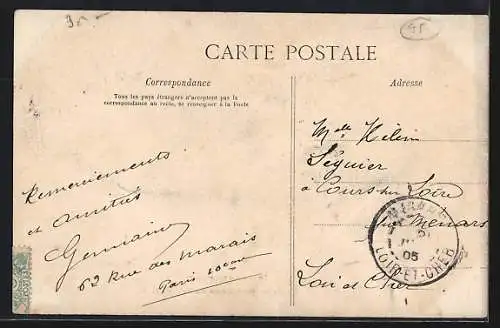 CARTE POSTALE
Correspondance
Tous les pays étrangers n'acceptent pas la
correspondance au recto, se renseigner à la Poste
Adresse
Remerciements
et amitiés
Germaine
62 Rue des Marais
Paris 10ème
Melle
Séguier
à Cours sur Loire
par Menars
Loir et Cher
05
LOIR-ET-CHER